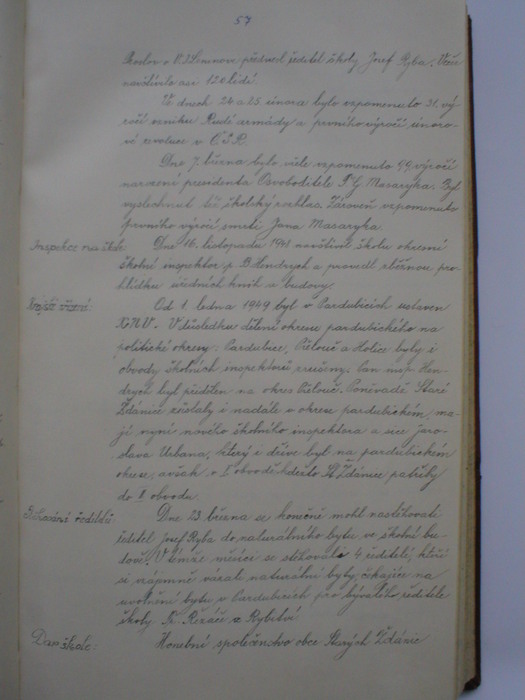 57
proslov o V. I. Leninovi přednesl ředitel školy Josef Ryba. Večer
navštívilo asi 120 lidí.
Ve dnech 24. a 25. února bylo vzpomenuto 31. vý-
ročí vzniku Rudé armády a prvního výročí únoro-
vé revoluce v ČSR.
Dne 7. března bylo vřele vzpomenuto 99. výročí
narození presidenta Osvoboditele T. G. Masaryka. Byl
vyslechnut též školský rozhlas. Zároveň vzpomenuto
prvního výročí smrti Jana Masaryka.
Inspekce na škole Dne 16. listopadu 1948 navštívil školu okresní
školní inspektor p. B. Hendrych a provedl zběžnou pro-
hlídku úředních knih a budovy.
Krajské zřízení Od 1. ledna 1949 byl v Pardubicích ustaven
KNV. V důsledku dělení okresu pardubického na
politické okresy: Pardubice, Přelouč a Holice byly i
obvody školních inspektorů rozděleny. Pan insp. Hen-
drych byl přidělen na okres Přelouč. Poněvadž Staré
Ždánice zůstaly i nadále v okrese pardubickém, ma-
jí nyní nového školního inspektora a sice Jaro-
slava Urbana, který i dříve byl na pardubickém
okrese, avšak v I. obvodě, kdežto St. Ždánice patřily
do II. obvodu.
Stěhování ředitelů Dne 23. března se konečně mohl nastěhovati
ředitel Josef Ryba do naturálního bytu ve školní bu-
dově. V témže měsíci se stěhovali 4 ředitelé, kteří
si nájemně vázali naturální byty, čekajíce na
uvolnění bytu v Pardubicích pro bývalého ředitele
školy Fr. Řezáče z Rybitví
Dar škole: Honební společenstvo obce Starých Ždánic